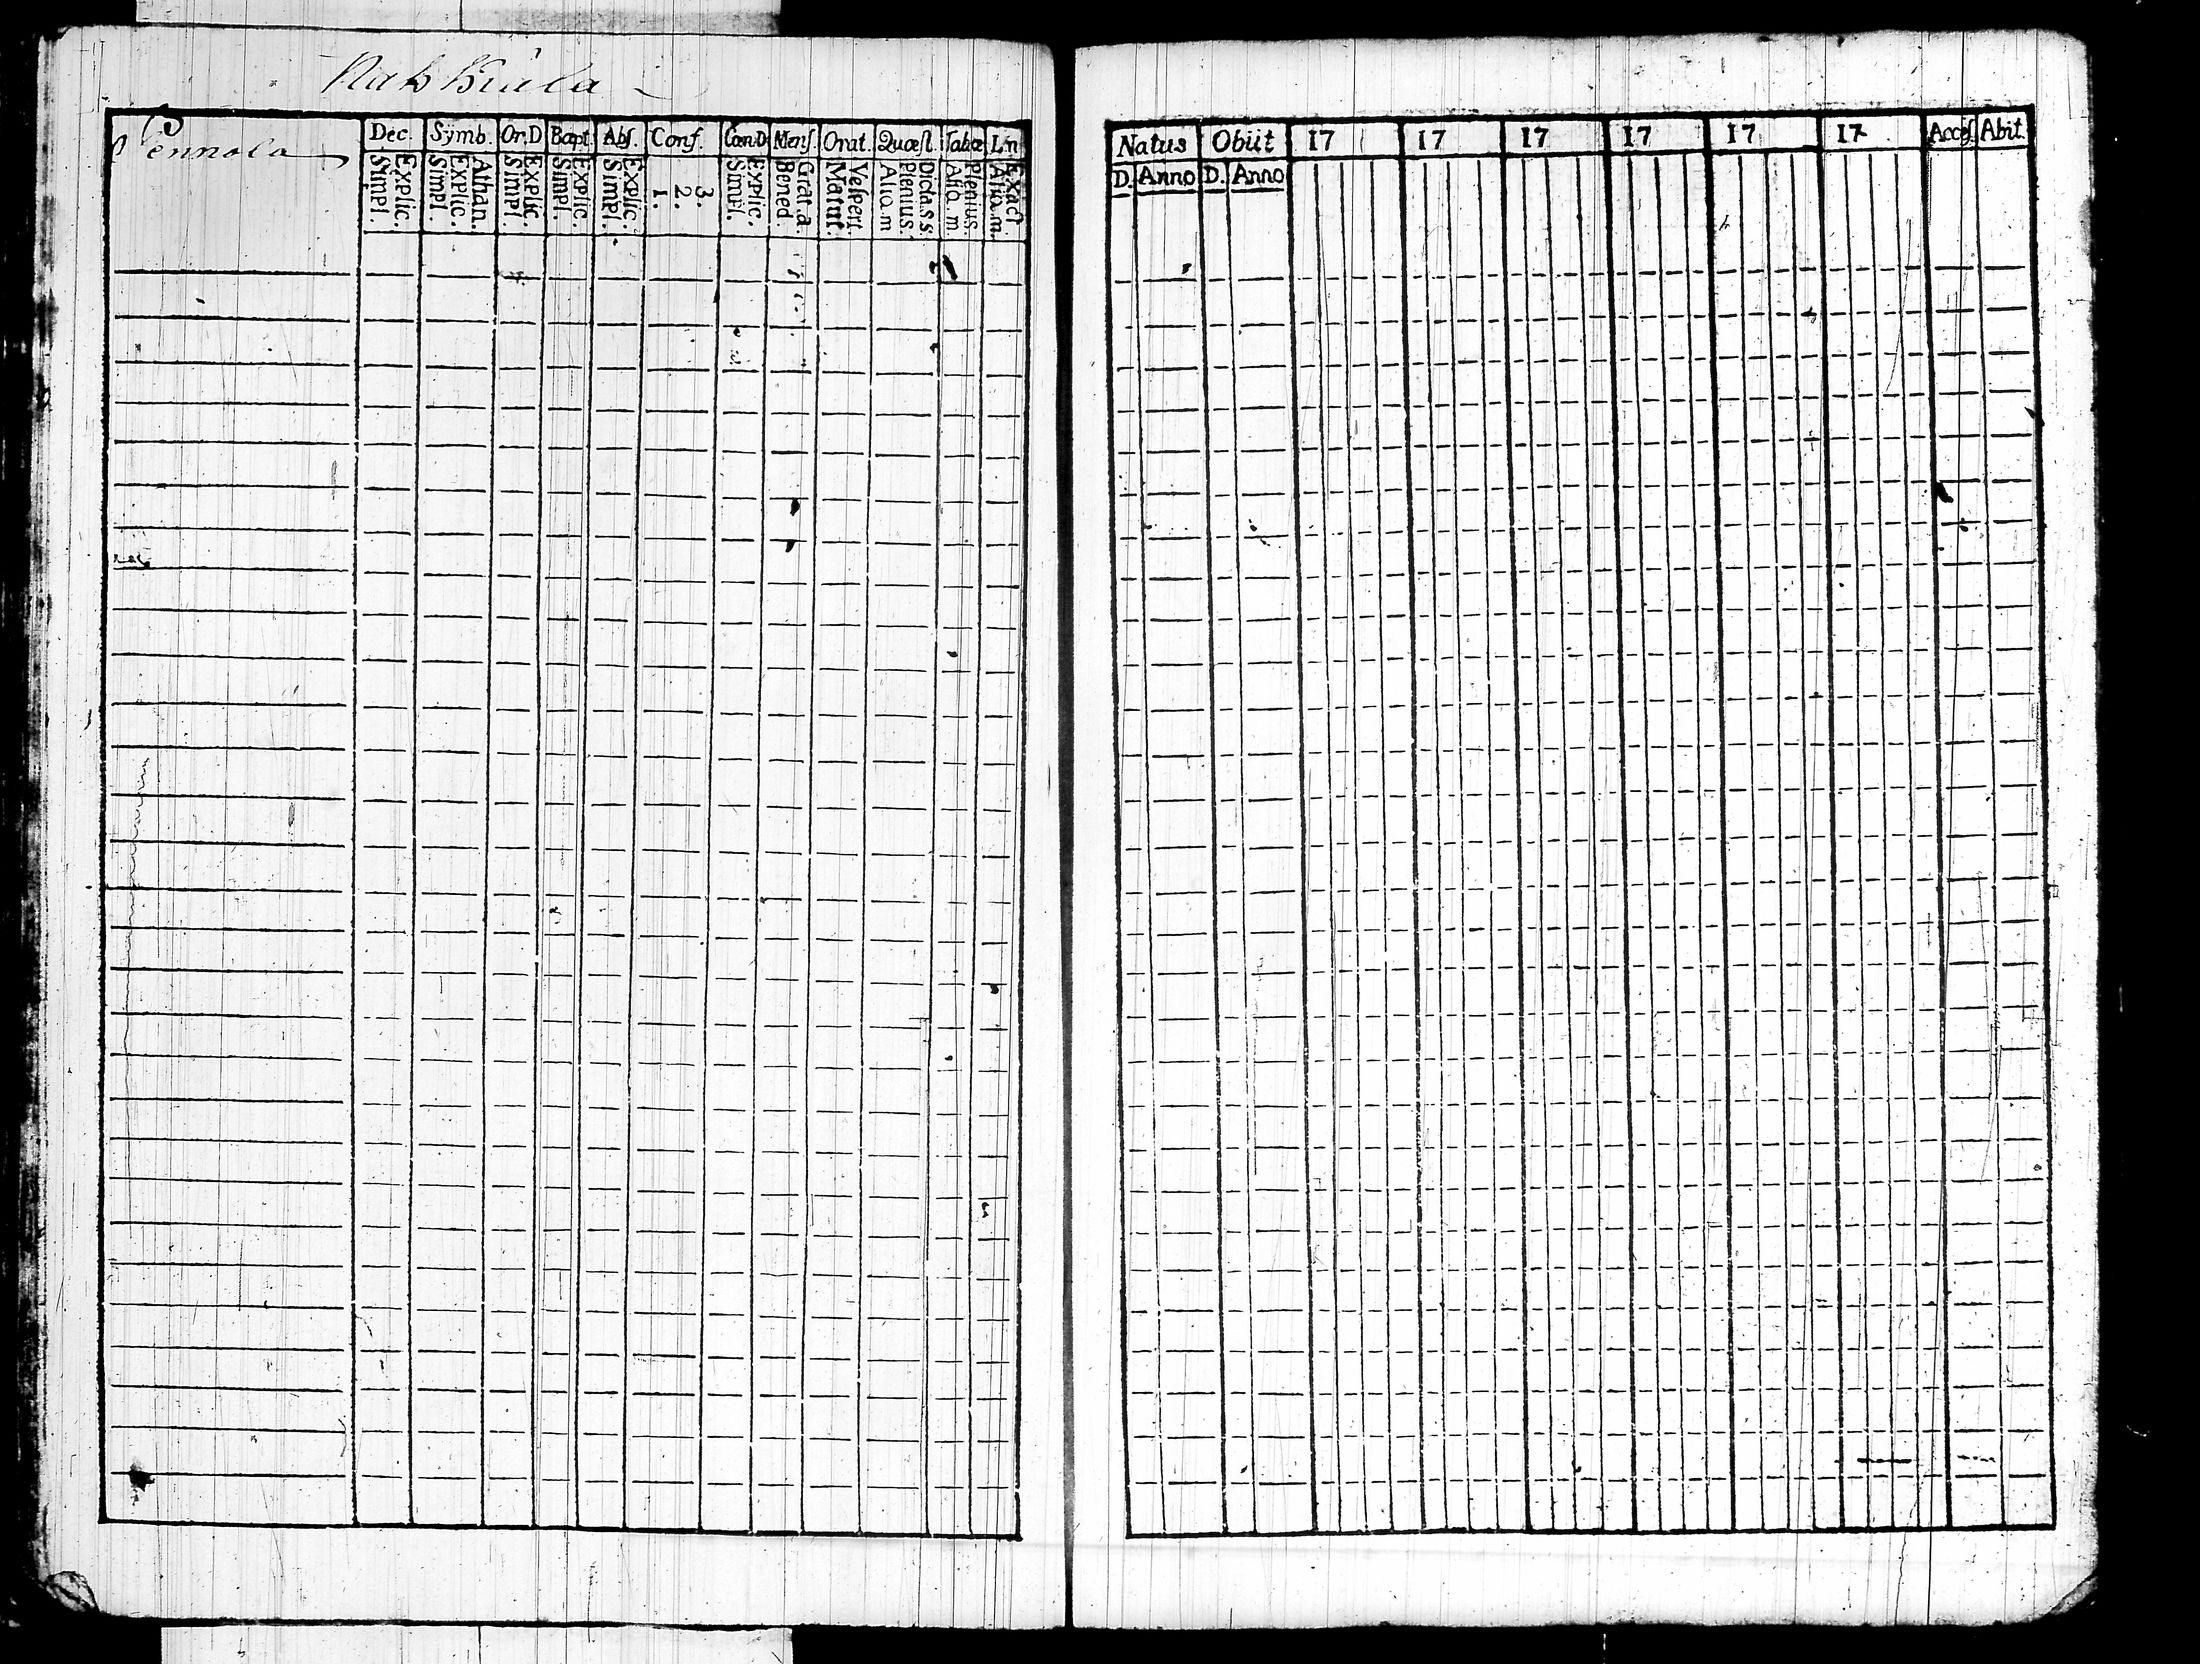 Nakkiala
Pennala
Dec. Symb. Or.D Bapt. Abs. Conf. Cœn.D Mens. Orat. Quæst. Tabæ Lin
Simpl. Explic. Simpl. Explic. Athan. Simpl. Explic. Simpl. Explic. Simpl. Explic. 1. 2. 3. Simpl. Explic. Bened. Grat.a. Matut. Vespert. Aliq.m Plenius. Dicta s s. Aliq.m Plenius. Aliq.m. Exact
Natus Obiit 17 17 17 17 17 17 Acces. Abit.
D. Anno D. Anno